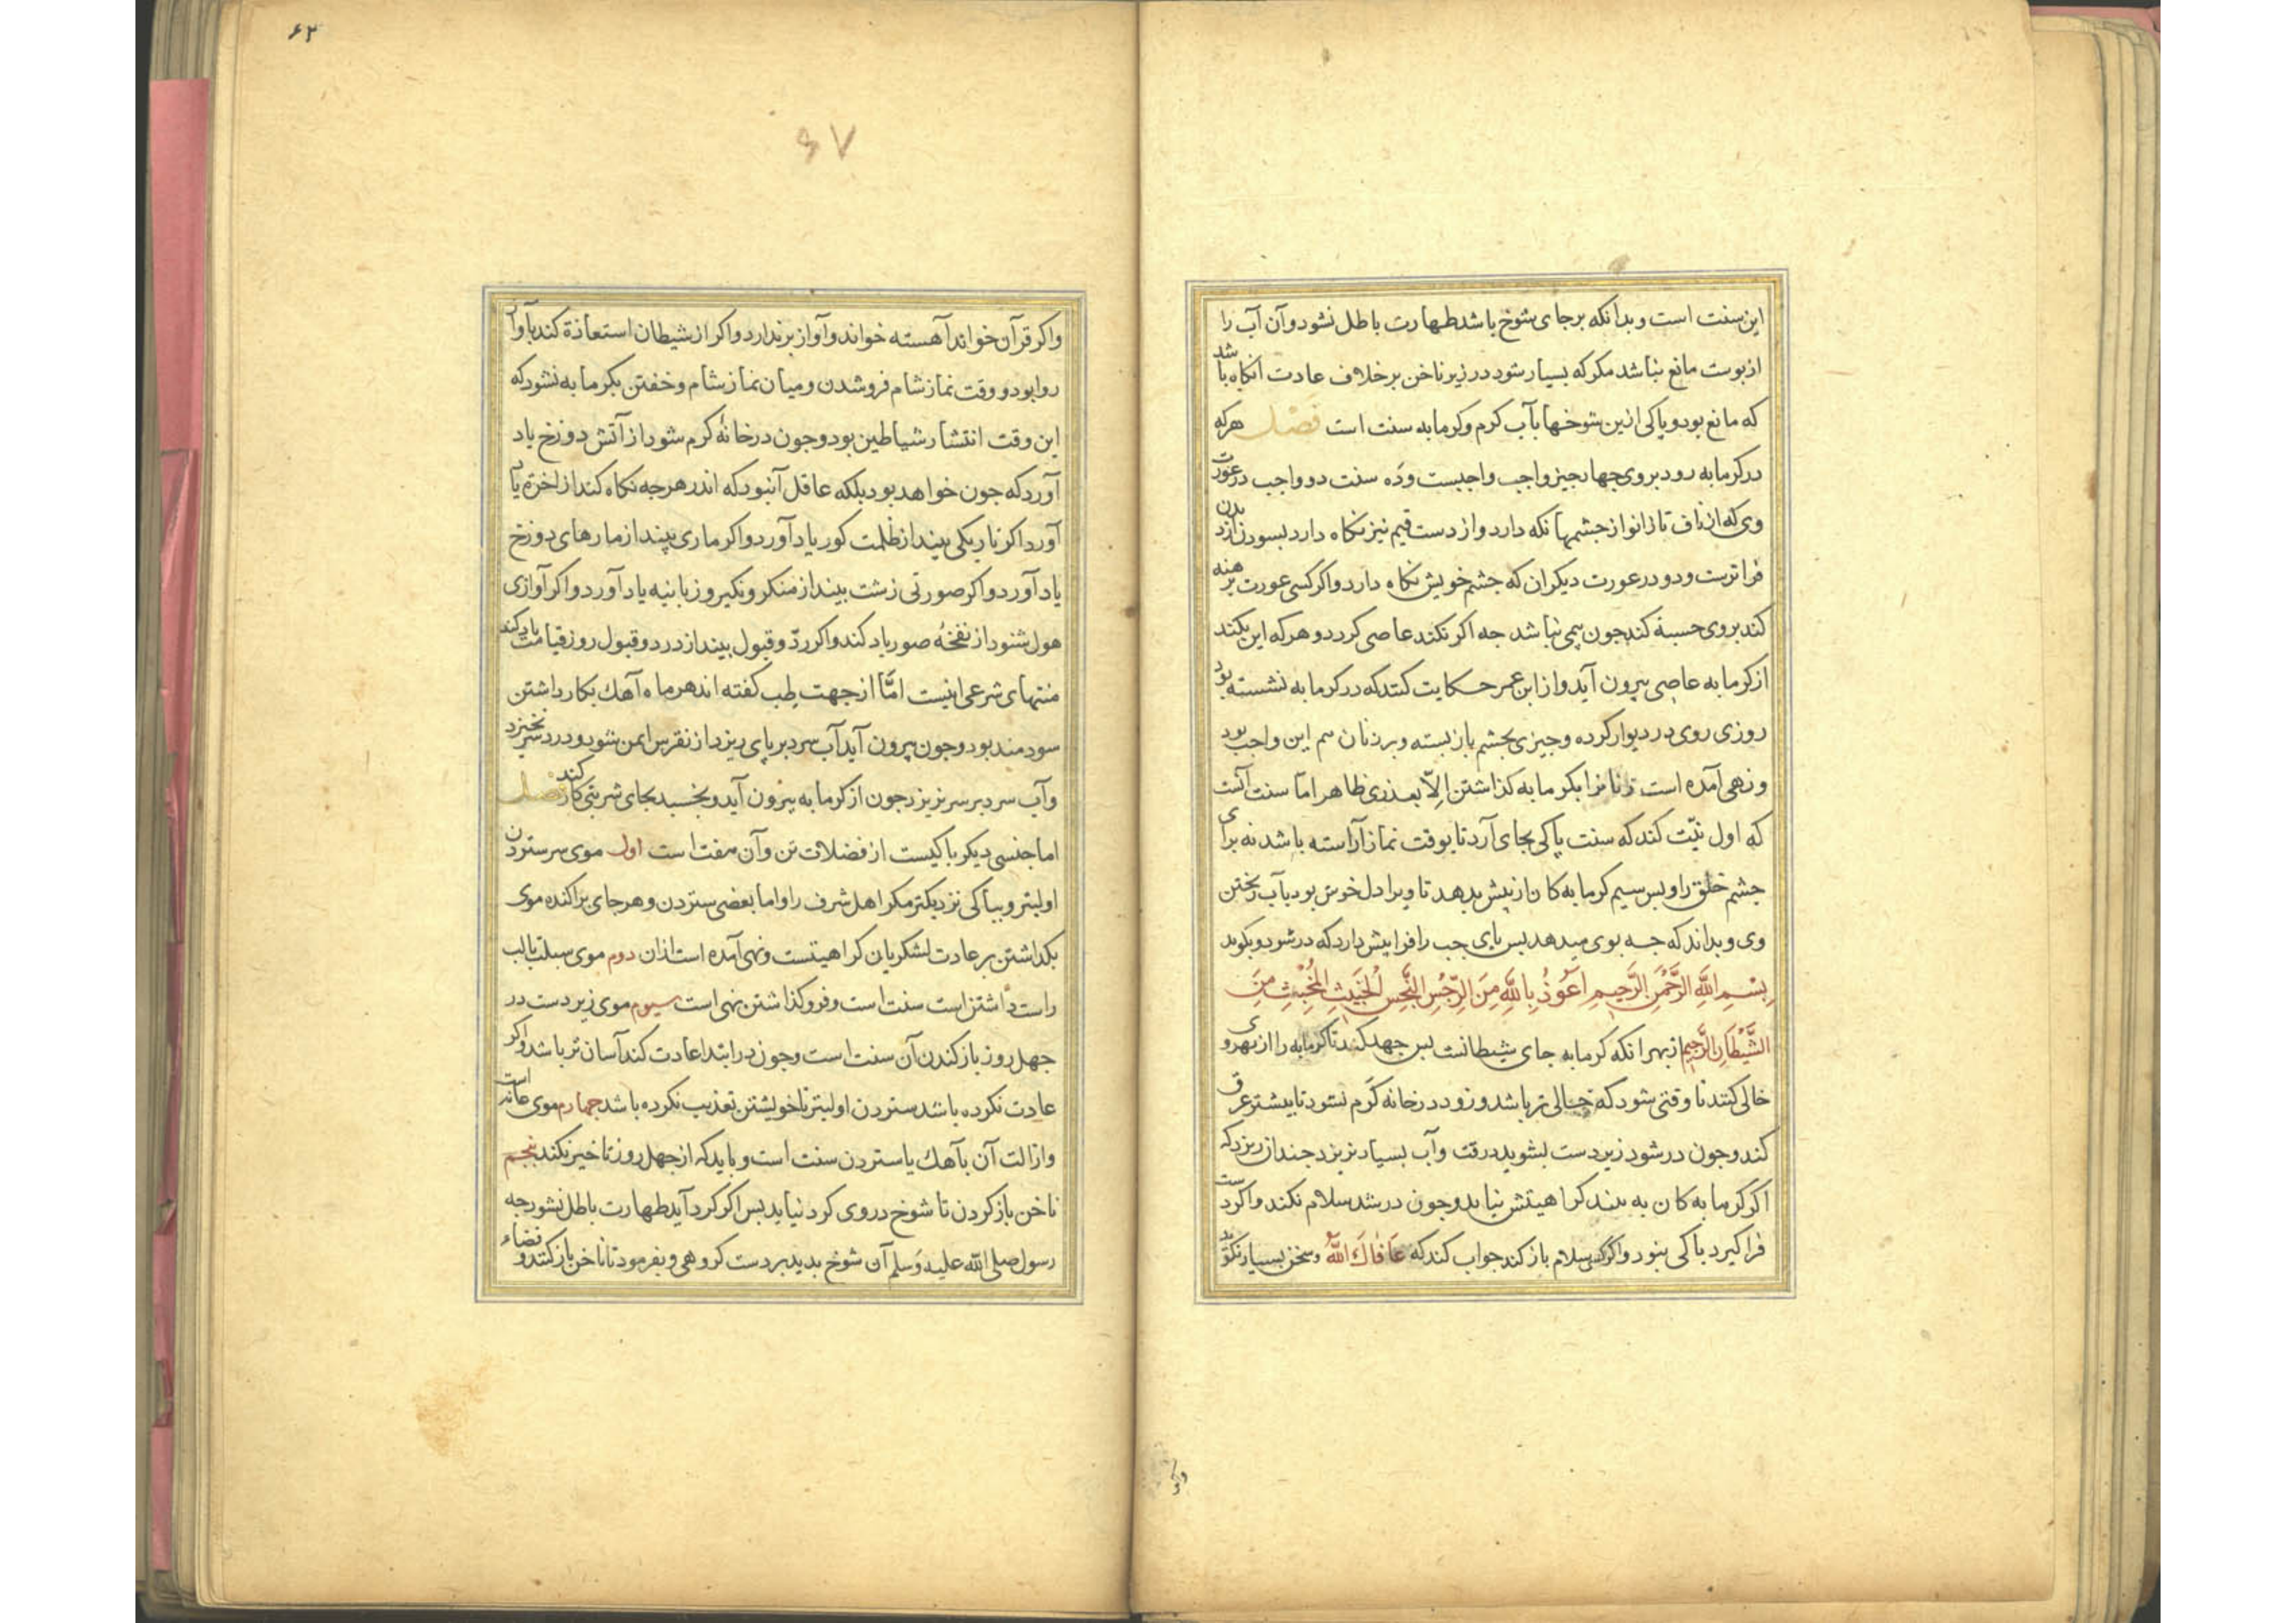 این سنت است و بدانکه برجای شوخ باشد طهارت باطل نشود و آن آب را
از بوست مانع نباشد مکر که بسیار شود در زیر ناخن بر خلاف عادت آنکاه باشد
که مانع بود و باکی ازین شوخها بآب کرم و کرمابه سنت است فصل هرکه
در کرمابه رود بروی جهار جیز واجب واجبست و ده سنت دو واجب در عورت
وی که از ناف تا زانو از جشمها نکه دارد و از دست قیم نیز نکاه دارد بسودن از بدن
فراترست و دو در عورت دیکران که جشم خویش نکاه دارد و اکر کسی عورت برهنه
کند بروی حسبة کند جون بیمی نباشد جه اکر نکند عاصی کردد و هرکه این نکند
از کرمابه عاصی بیرون آید و از ابن عمر حکایت کنند که در کرمابه نشسته بود
روزی روی در دیوار کرده و جیزی بجشم باز بسته و بر زنان هم این واجب بود
و نهی آمده است زنانرا بکرمابه کذاشتن الّا بعذری ظاهر امّا سنت آنست
که اول نیّت کند که سنت پاکی بجای آرد تا بوقت نماز آراسته باشد نه برای
جشم خلق را و بس سیم کرمابه کان از بیش بدهد تا ویرا دل خوش بود بآب ریختن
وی و بداند که جه بوی میدهد بس بای جب را فرا بیش دارد که در شود و بکوید
بِسْمِ اللّهِ الرَّحْمٰنِ الرَّحِیمِ اَعُوذُ بِاللّهِ مِنَ الرِّجْسِ النَّجِسِ الْخَبِیثِ الْمُخْبِثِ مِنَ
الشَّیْطَانِ الرَّجِیمِ از بهر انکه کرمابه جای شیطانست بس جهد کند تا کرمابه را از بهر وی
خالی کنند تا وقتی شود که خالی تر باشد و زود در خانه کَرم نشود تا بیشتر عرق
کند و جون در شود زیر دست بشوید در وقت و آب بسیار نریزد جندان ریزد که
اکر کرمابه کان به بیند کراهیتش نیاید و جون در شد سلام نکند و اکر دست
فرا کیرد باکی نبود و اکر کسی سلام باز کند جواب کند که عَافَاكَ اللّهُ و سخن بسیار نکوید
۶۳
۶۷
و اکر قرآن خواند آهسته خواند و آواز بر ندارد و اکر از شیطان استعاذة کند بآواز
روا بود و وقت نماز شام فروشدن و میان نماز شام و خفتن بکرمابه نشود که
این وقت انتشار شیاطین بود و جون در خانهٔ کرم شود از آتش دوزخ یاد
آورد که جون خواهد بود بلکه عاقل آنبود که اندر هرجه نکاه کند از آخرة یاد
آورد اکر تاریکی بیند از ظلمت کور یاد آورد و اکر ماری بیند از مارهای دوزخ
یاد آورد و اکر صورتی زشت بیند از منکر و نکیر و زبانیه یاد آورد و اکر آوازی
هول شنود از نفخهٔ صور یاد کند و اکر ردّ و قبول بیند از رد و قبول روز قیامت یاد کند
سنتهای شرعی اینست امّا از جهت طِب کفته اند هر ماه آهك بکار داشتن
سودمند بود و جون بیرون آید آب سرد بر پای ریزد از نقرس ایمن شود و درد سر نخیزد
و آب سرد بر سر نریزد جون از کرمابه بیرون آید و بخسبد بجای شربتی کار کند فصل
اما جنسی دیکر باکیست از فضلات تن و آن هفت است اول موی سر ستردن
اولیتر و بباکی نزدیکتر مکر اهل شرف را و اما بعضی ستردن و هر جای براکنده موی
بکذاشتن بر عادت لشکریان کراهیتست و نهی آمده است ازان دوم موی سبلت با لب
راست داشتن است سنت است و فرو کذاشتن نهی است سیوم موی زیر دست در
جهل روز باز کندن آن سنت است و جون در ابتدا عادت کند آسان تر باشد و اکر
عادت نکرده باشد ستردن اولیتر تا خویشتن تعذیب نکرده باشد جهارم موی عانه است
و ازالت آن بآهك یا ستردن سنت است و باید که از جهل روز تاخیر نکند بنجم
ناخن باز کردن تا شوخ در وی کرد نیاید بس اکر کرد آید طهارت باطل نشود جه
رسول صلی اللّه علیه وَسلم آن شوخ بدید بر دست کروهی و بفرمود تا ناخن باز کنند و قضاء